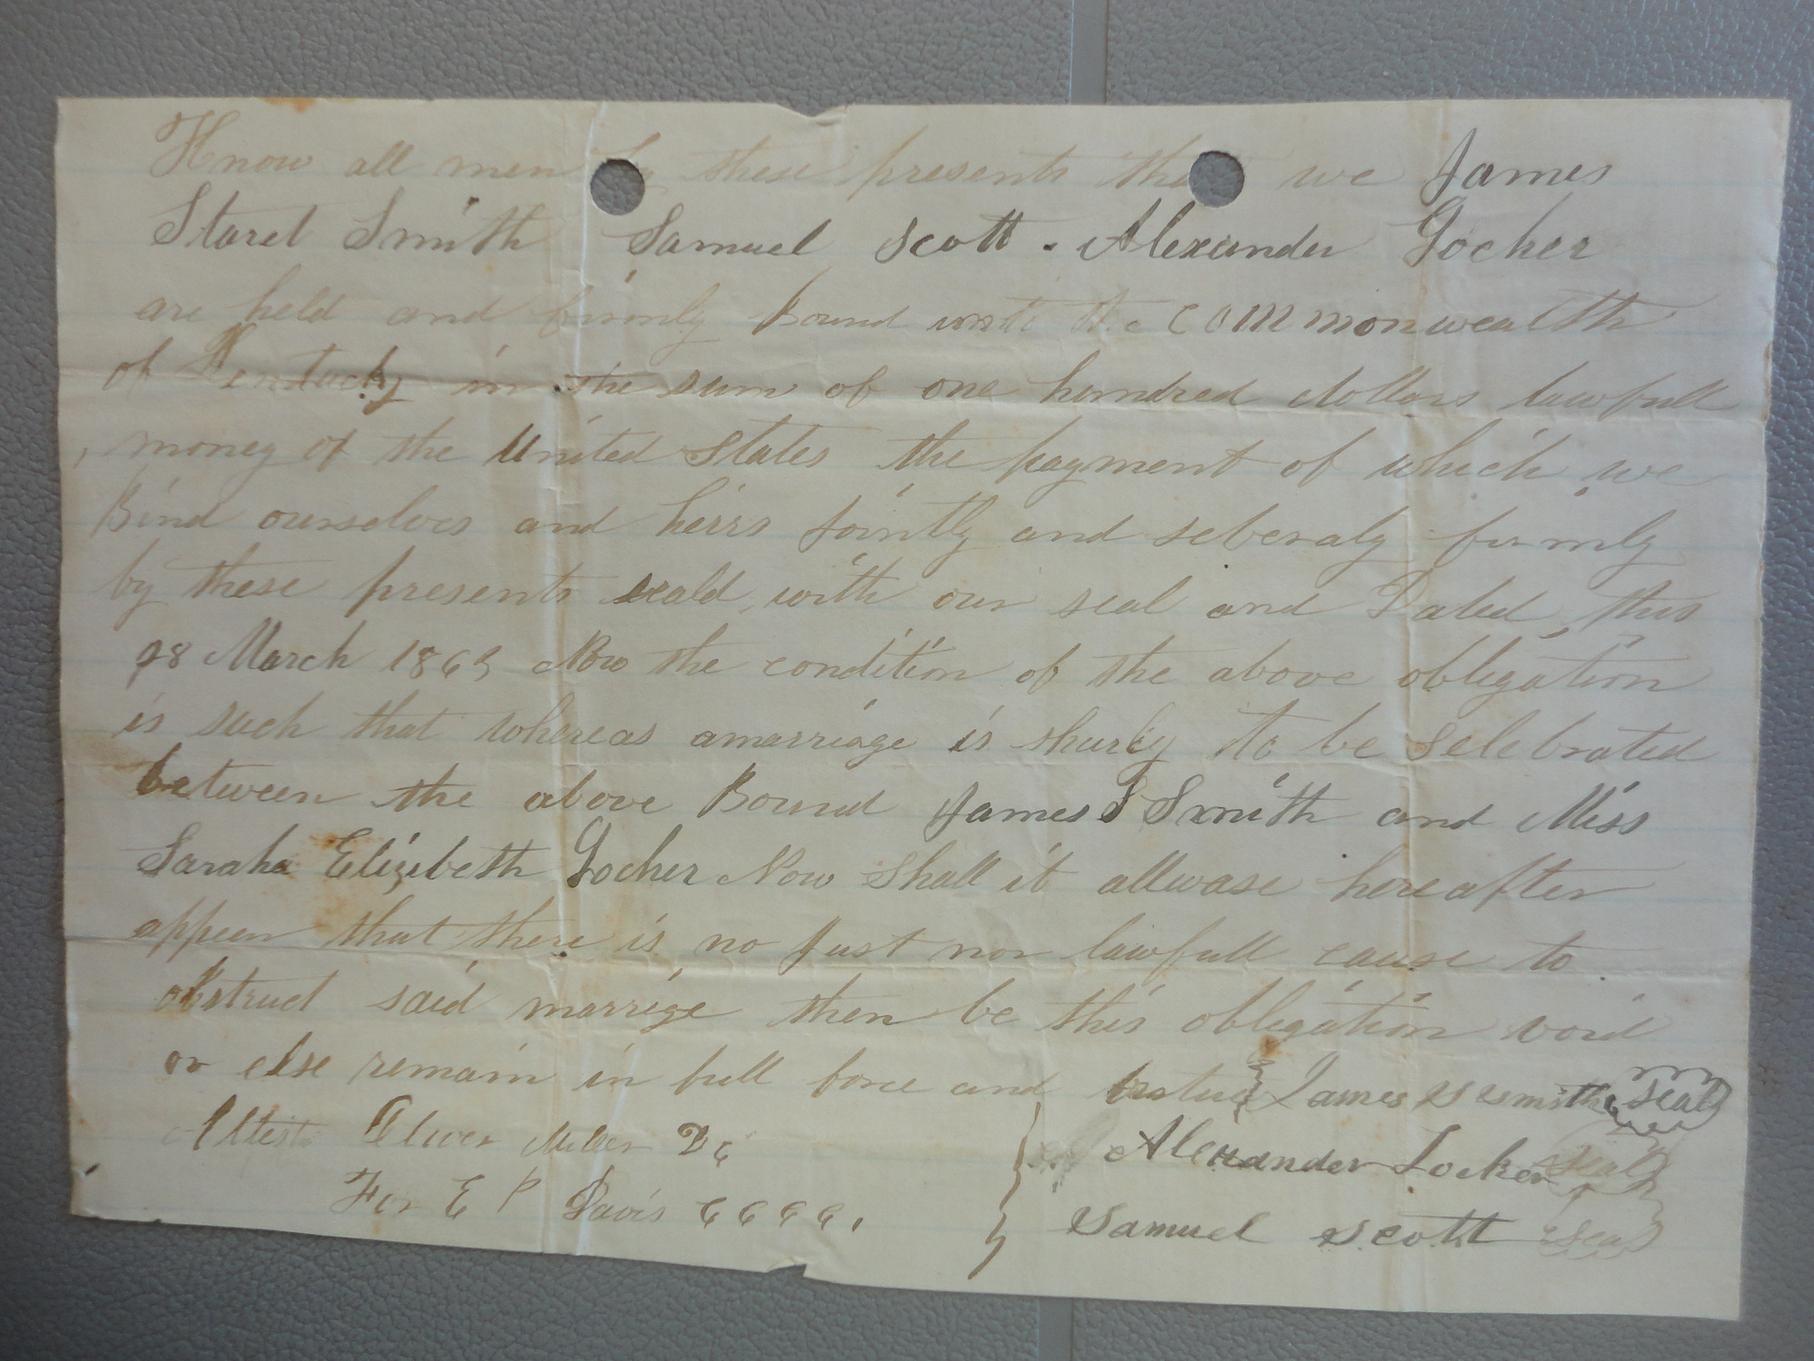 Know all men by these presents that we James
Starel Smith Samuel Scott - Alexander Locker
are held and firmly Bound unto the commonwealth
of Kentucky in the sum of one hundred dollars lawfull
money of the United States the payment of which we
Bind ourselves and heirs Jointly and seberaly firmly
by these presents seald with our seal and Dated this
28 March 1865 Now the condition of the above obligation
is such that whereas amarriage is shurly to be Selebrated
between the above Bound James S Smith and Miss
Saraha Elizibeth Locker Now Shall it allwase hereafter
appear that there is no Just nor lawfull cause to
obstruct said marrige then be this obligation void
or else remain in full force and James S Smith Seal
Attest Oliver Miller DC Alexander Locker Seal
For E P Davis CCCC. Samuel Scott Seal